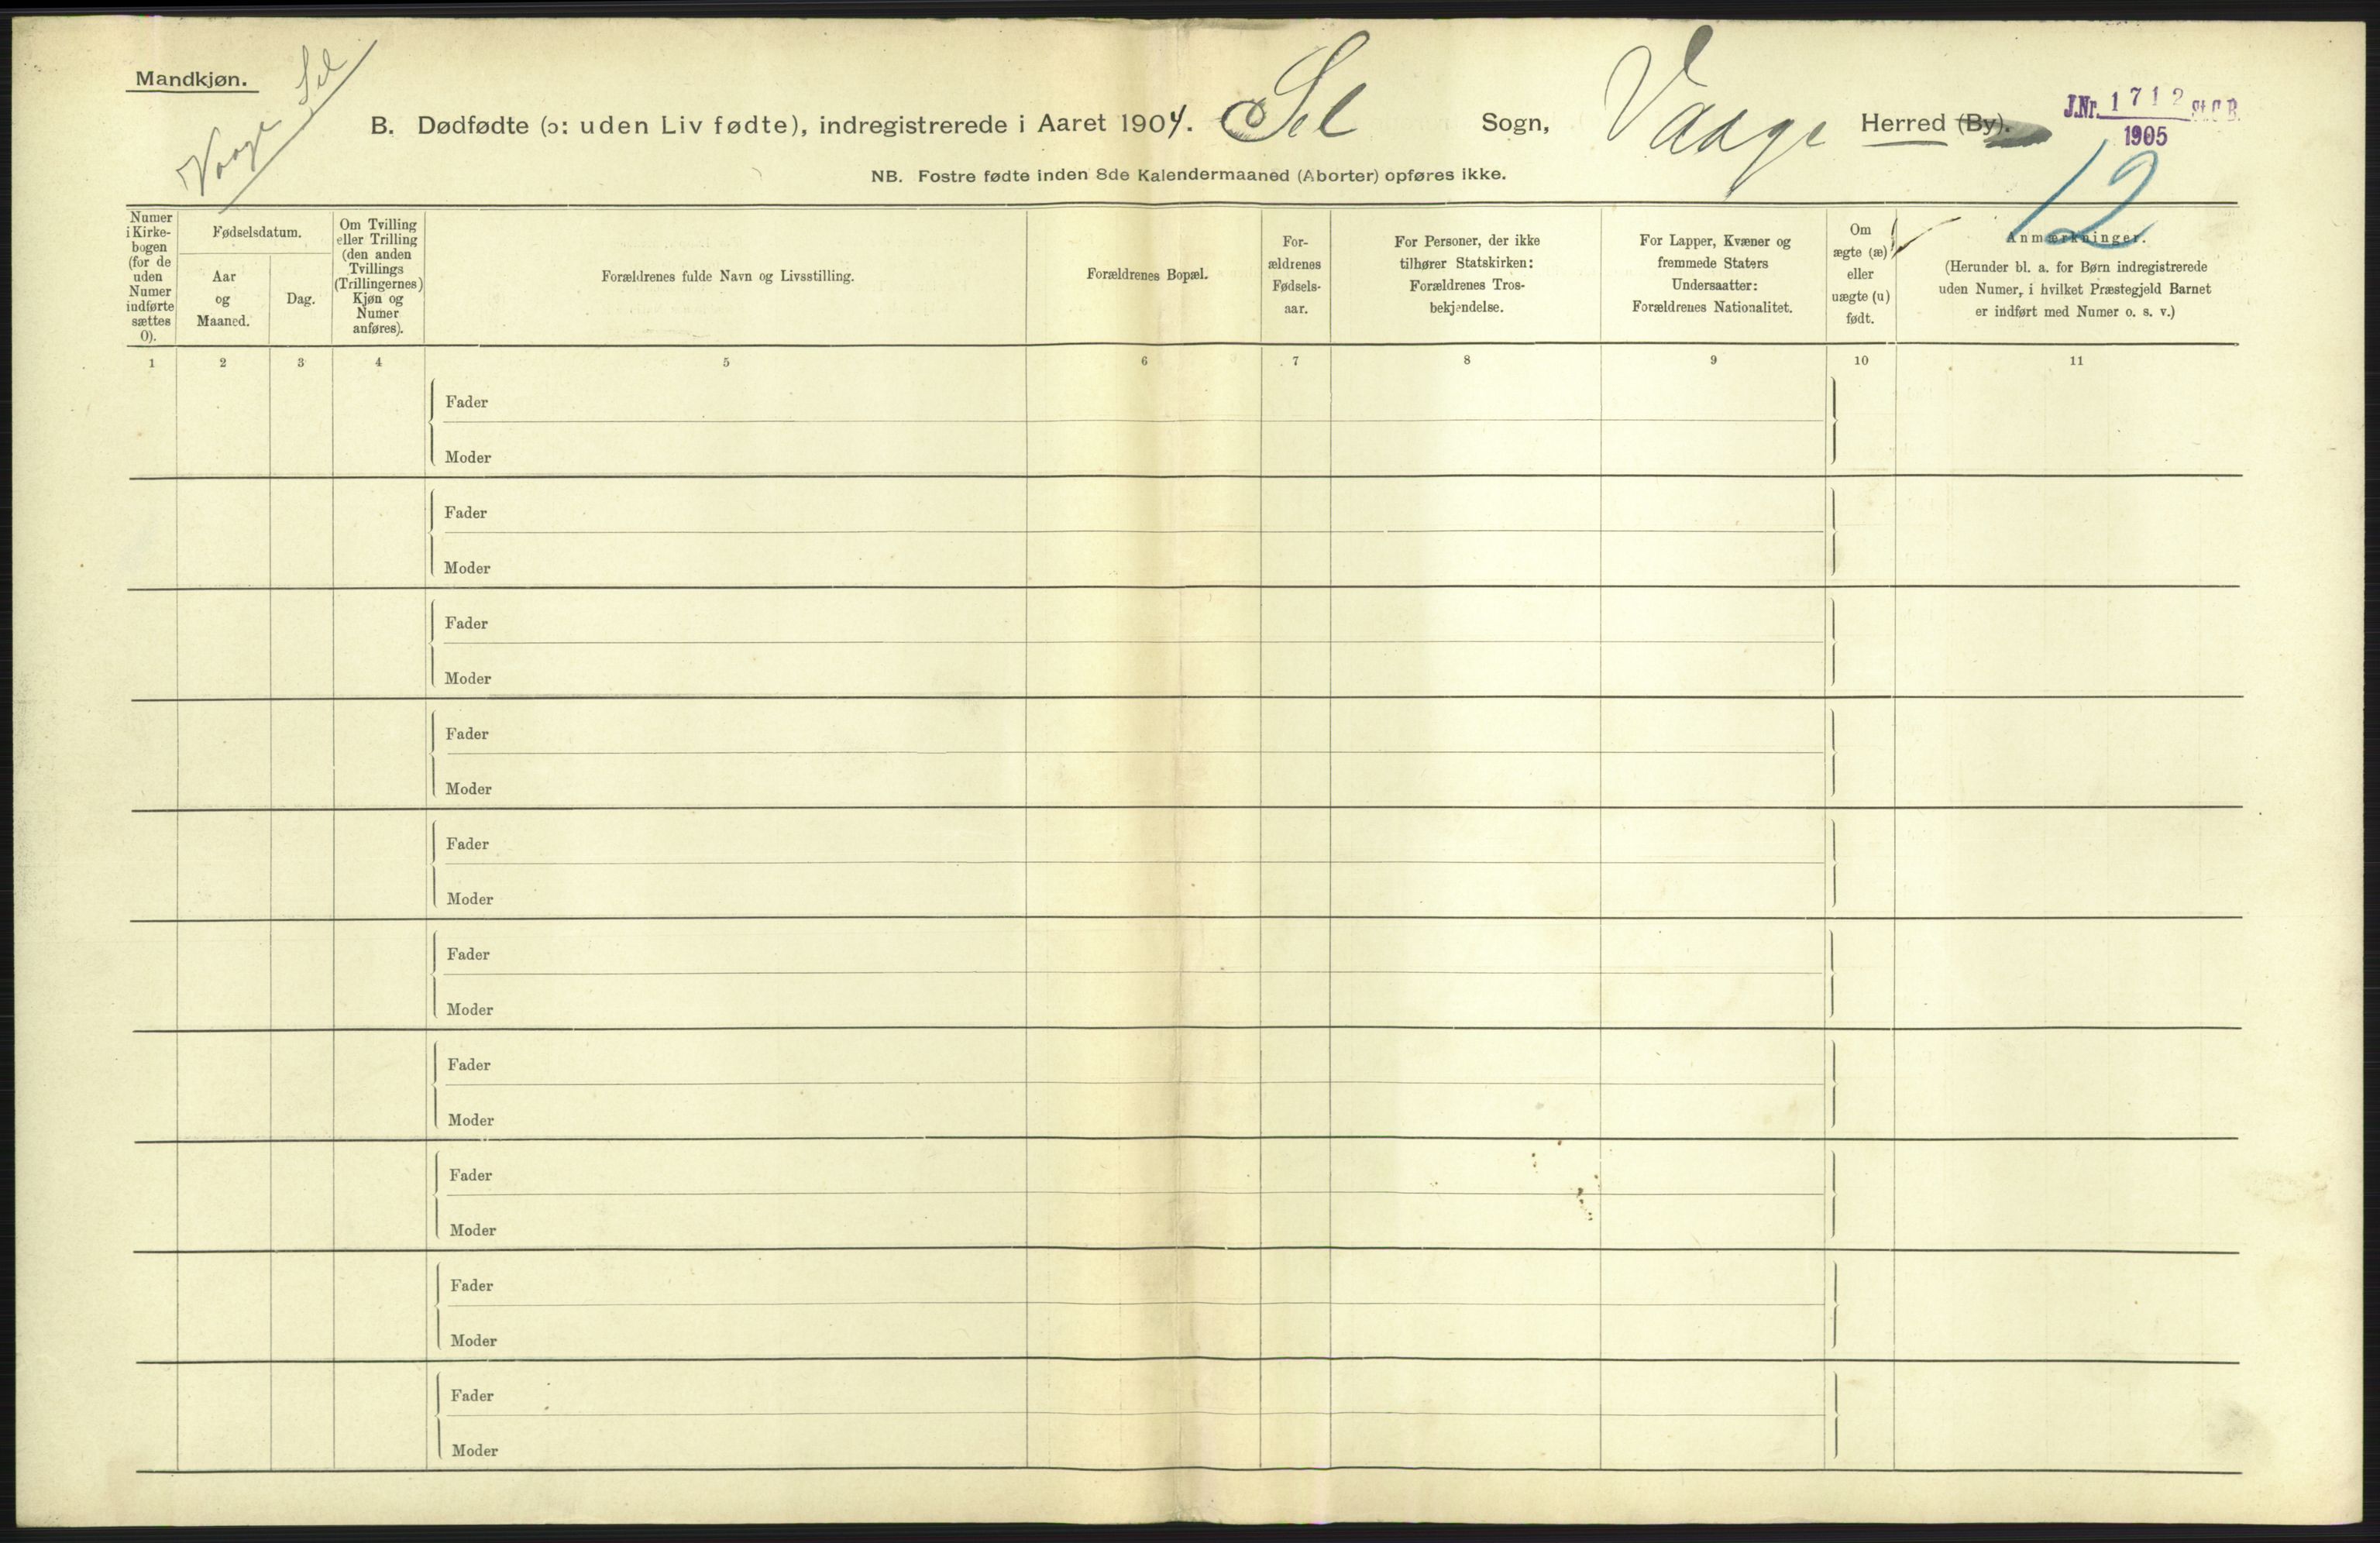 Mandkjøn.
Vaage Sel
B. Dødfødte (ɔ: uden Liv fødte), indregistrerede i Aaret 1904. Sel Sogn, Vaage Herred (By).
J.Nr. 1712 St.C.B.
1905
12
NB. Fostre fødte inden 8de Kalendermaaned (Aborter) opføres ikke.
Numer
i Kirke-
bogen
(for de
uden
Numer
indførte
sættes
0).
Fødselsdatum.
Aar
og
Maaned.
Dag.
Om Tvilling
eller Trilling
(den anden
Tvillings
(Trillingernes)
Kjøn og
Numer
anføres).
Forældrenes fulde Navn og Livsstilling.
Forældrenes Bopæl.
For-
ældrenes
Fødsels-
aar.
For Personer, der ikke
tilhører Statskirken:
Forældrenes Tros-
bekjendelse.
For Lapper, Kvæner og
fremmede Staters
Undersaatter:
Forældrenes Nationalitet.
Om
ægte (æ)
eller
uægte (u)
født.
Anmærkninger.
(Herunder bl. a. for Børn indregistrerede
uden Numer, i hvilket Præstegjeld Barnet
er indført med Numer o. s. v.)
1 2 3 4 5 6 7 8 9 10 11
Fader
Moder
Fader
Moder
Fader
Moder
Fader
Moder
Fader
Moder
Fader
Moder
Fader
Moder
Fader
Moder
Fader
Moder
Fader
Moder